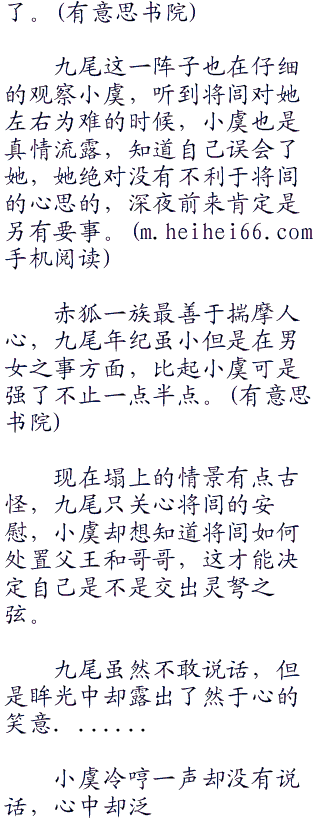 了。(有意思书院)
九尾这一阵子也在仔细
的观察小虞，听到将闾对她
左右为难的时候，小虞也是
真情流露，知道自己误会了
她，她绝对没有不利于将闾
的心思的，深夜前来肯定是
另有要事。(m.heihei66.com
手机阅读)
赤狐一族最善于揣摩人
心，九尾年纪虽小但是在男
女之事方面，比起小虞可是
强了不止一点半点。(有意思
书院)
现在塌上的情景有点古
怪，九尾只关心将闾的安
慰，小虞却想知道将闾如何
处置父王和哥哥，这才能决
定自己是不是交出灵弩之
弦。
九尾虽然不敢说话，但
是眸光中却露出了然于心的
笑意．......
小虞冷哼一声却没有说
话，心中却泛